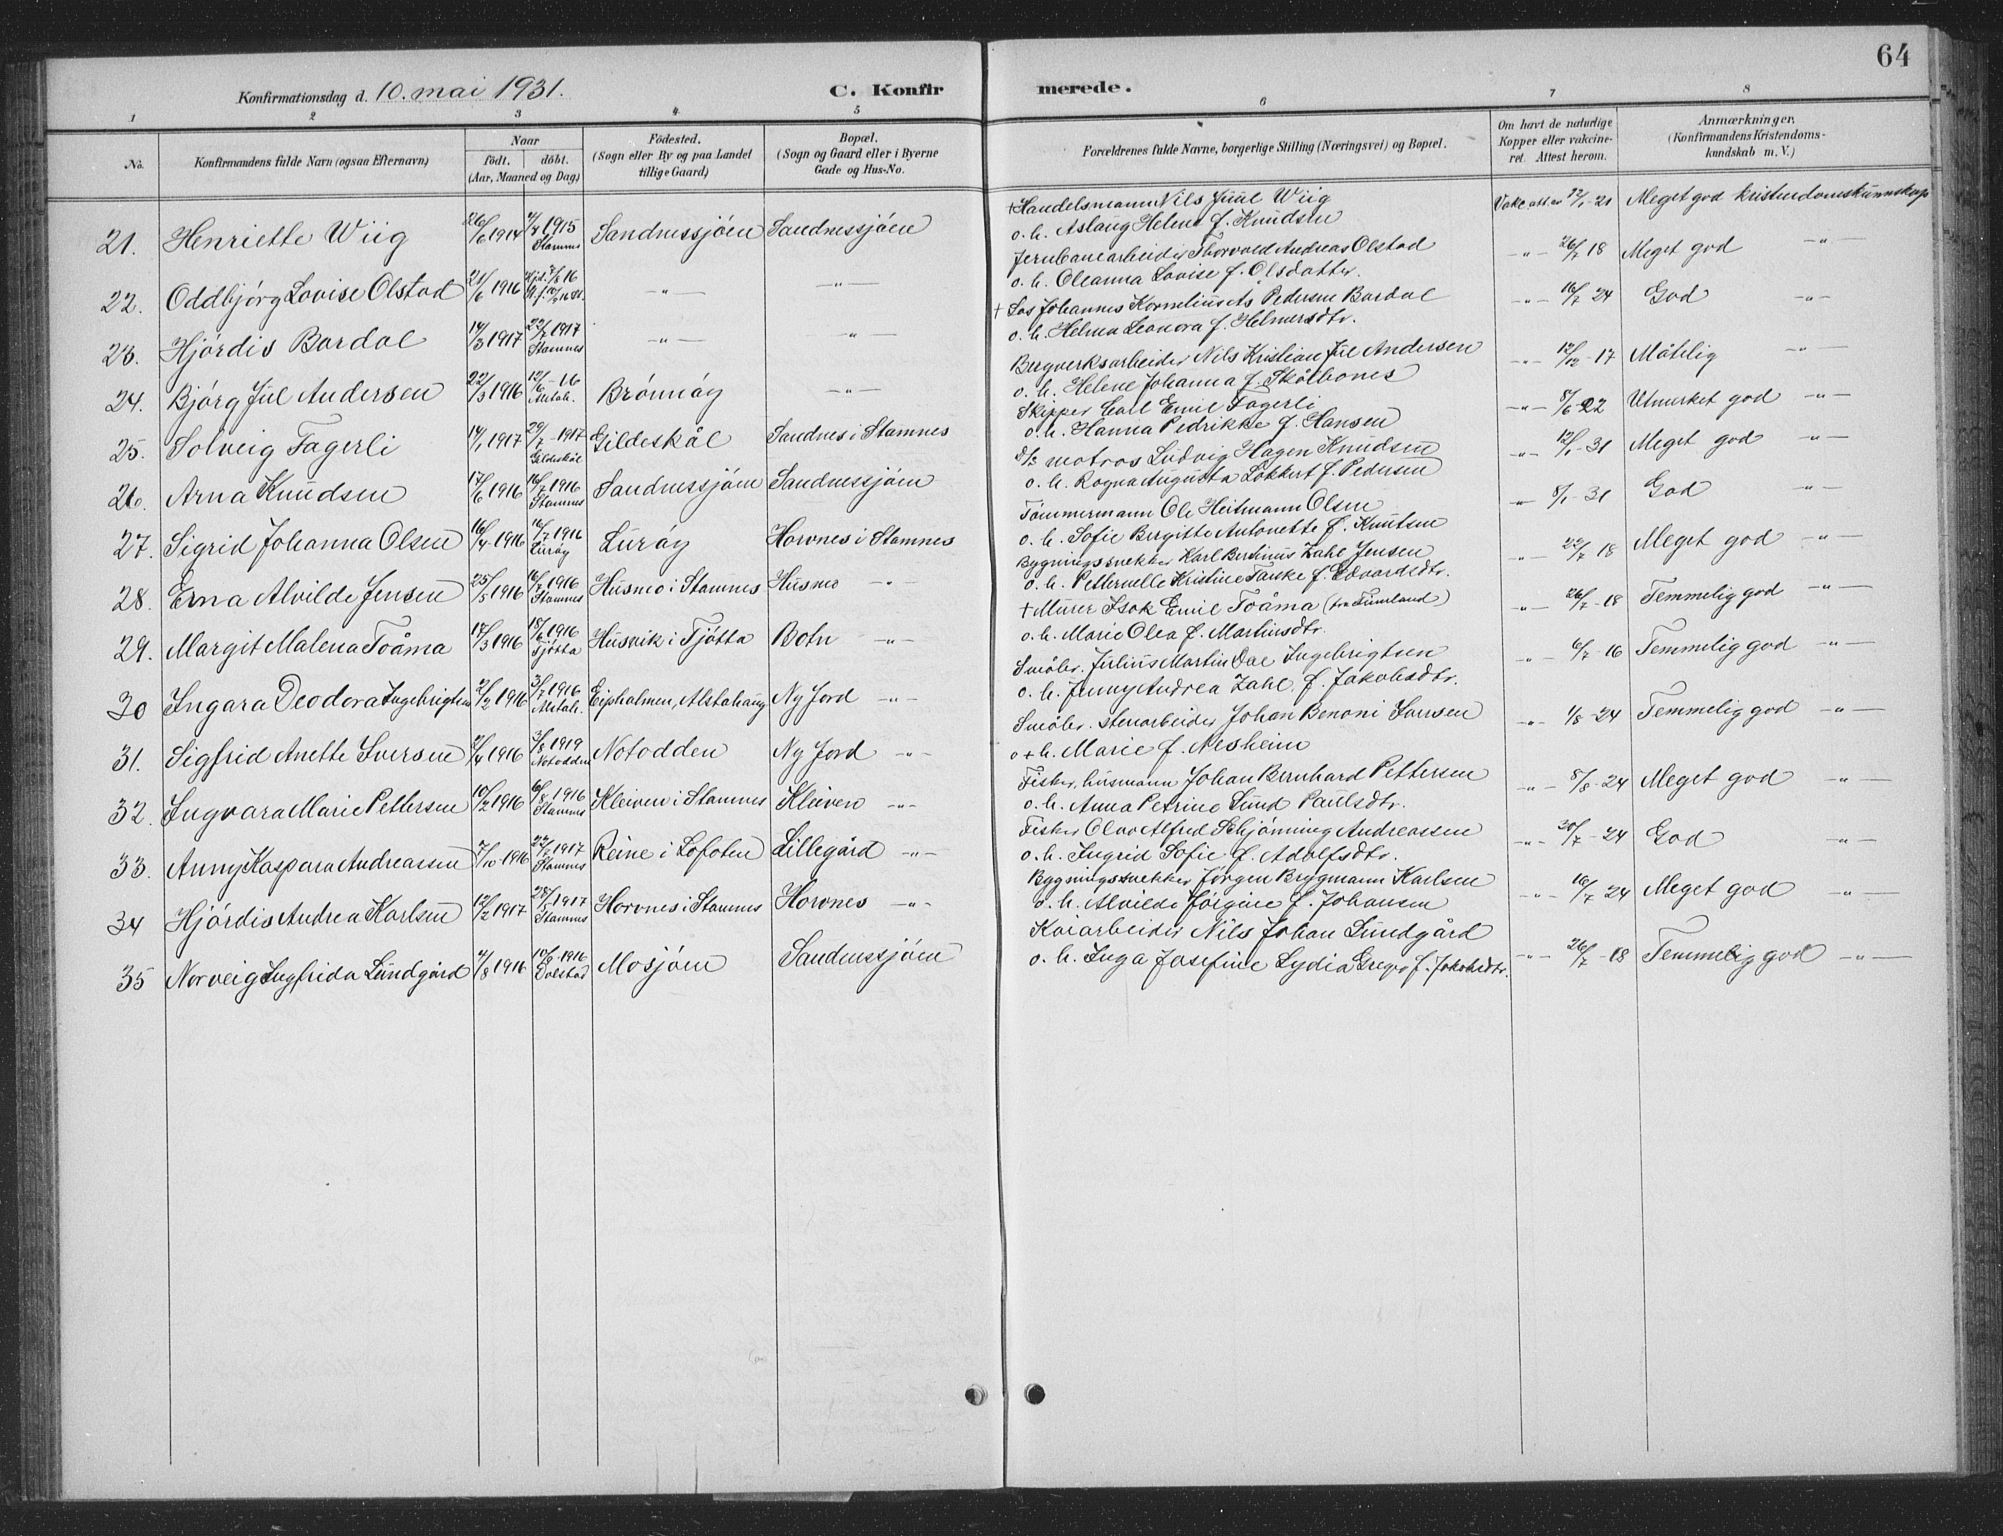 64
Konfirmationsdag d. 10. mai 1931.
C. Konfir
merede.
1 2 3 4 5 6 7 8
No.
Konfirmandens fulde Navn (ogsaa Efternavn)
Naar
født. døbt.
(Aar, Maaned og Dag)
Födested.
(Sogn eller By og paa Landet
tillige Gaard)
Bopæl.
(Sogn og Gaard eller i Byerne
Gade og Hus-No.
Forældrenes fulde Navne, borgerlige Stilling (Næringsvei) og Bopæl.
Om havt de naturlige
Kopper eller vakcine-
ret. Attest herom.
Anmærkninger.
(Konfirmandens Kristendoms-
kundskab m. V.)
+ Handelsmann Nils Juul Wiig
21. Henriette Wiig 26/6 1914 4/4 1915 Stamnes Sandnessjøen Sandnessjøen o. h. Aslaug Helene f. Knudsen Vakc. att. av 12/1-21 Meget god kristendomskunnskap
Jernbanearbeider Thorvald Andreas Olstad
22. Oddbjörg Lovise Olstad 21/6 1916 -"- -"- o. h. Oleanna Lovise f. Olsdatter. -"- 26/7 18 Meget god -"-
+ Los Johannes Kornelius As Pedersen Bardal
23. Hjördis Bardal 14/3 1917 22/7 1917 Stamnes -"- " o. h. Helma Leonora f. Helmersdtr. -"- 16/7 24 God -"-
Bergverksarbeider Nils Kristian Jül Andersen
24. Bjørg Jül Andersen 22/3 1916 12/6-16 Alstah. Brönnöy -"- o. h. Helene Johanna f. Skålbones -"- 12/12-17 Måtelig -"-
Skipper Carl Emil Fagerli
25. Solveig Fagerli 14/1 1917 29/7-1917 Gildeskål Gildeskål Sandnes i Stamnes o. h. Hanna Pedrikke f. Hansen -"- 8/6-22 Utmerket god -"-
d/s matros Ludvig Hagen Knudsen
26. Arna Knudsen 17/6 1916 16/7 1916 Stamnes Sandnessjøen Sandnessjøen o. h. Ragna Augusta Lökkert f. Pedersen -"- 12/1-31 Meget god -"-
Tömmermann Ole Heitmann Olsen
27. Sigrid Johanna Olsen 16/4-1916 16/7 1916 Luröy Luröy Horvnes i Stamnes o. h. Sofie Bergitte Antonette f. Knutsen -"- 8/1-31 God -"-
Bygningssnekker Karl Bertinus Zahl Jensen
28. Erna Alvilde Jensen 25/5 1916 16/7 1916 Stamnes Husmo i Stamnes Husmo -"- o. h. Petternelle Kristine Taiske f. Edvardsdtr. -"- 22/7 18 Meget god -"-
+ Murer Isak Emil Toåma
29. Margit Malena Toåma 17/3 1916 18/6 1916 Tjötta Husvik i Tjötta Botn -"- o. h. Marie Olea f. Martinsdtr. -"- 26/7-18 Temmelig god -"-
Småbr. Julius Martin Dae Ingebrigtsen
30 Ingara Deodora Ingebrigtsen 2/2 1916 3/7 1916 Alstah. Eipsholmen, Alstahaug Ny Jord -"- o. h. Jenny Andrea Zahl f. Jakobsdtr. -"- 6/7-16 Temmelig god -"-
Småbr. stenarbeider Johan Benoni Iversen
31. Sigfrid Anette Iversen 2/4 1916 3/8 1919 Notodden Notodden Ny Jord -"- o + h. Marie f. Nesheim -"- 1/8-24 Temmelig god -"-
Fisker, husmann Johan Bernhard Pettersen
32. Ingvara Marie Pettersen 10/2 1916 6/8 1916 Stamnes Kleiven i Stamnes Kleiven -"- o. h. Anna Petrine Lund Paulsdtr. -"- 8/8-24 Meget god -"-
Fisker Olav Alfred Schjønning Andreassen
33. Anny Kaspara Andreassen 7/10-1916 22/7 1917 Stamnes Reine i Lofoten Lillegård -"- o. h. Ingrid Sofie f. Adolfsdtr. -"- 20/7-24 God -"-
Bygningssnekker Jørgen Brygmann Karlsen
34 Hjördis Andrea Karlsen 12/2 1917 28/5 1917 Stamnes Horvnes i Stamnes Horvnes -"- o. h. Alvilde Jørgine f. Johansen -"- 16/7 24 Meget god -"-
Kaiarbeider Nils Johan Lundgård
35 Norveig Ingfrida Lundgård 4/8 1916 10/9-1916 Dolstad Mosjøen Sandnessjøen o. h. Inga Josefine Lydia Grego f. Jakobsdtr. -"- 26/7-18 Temmelig god -"-